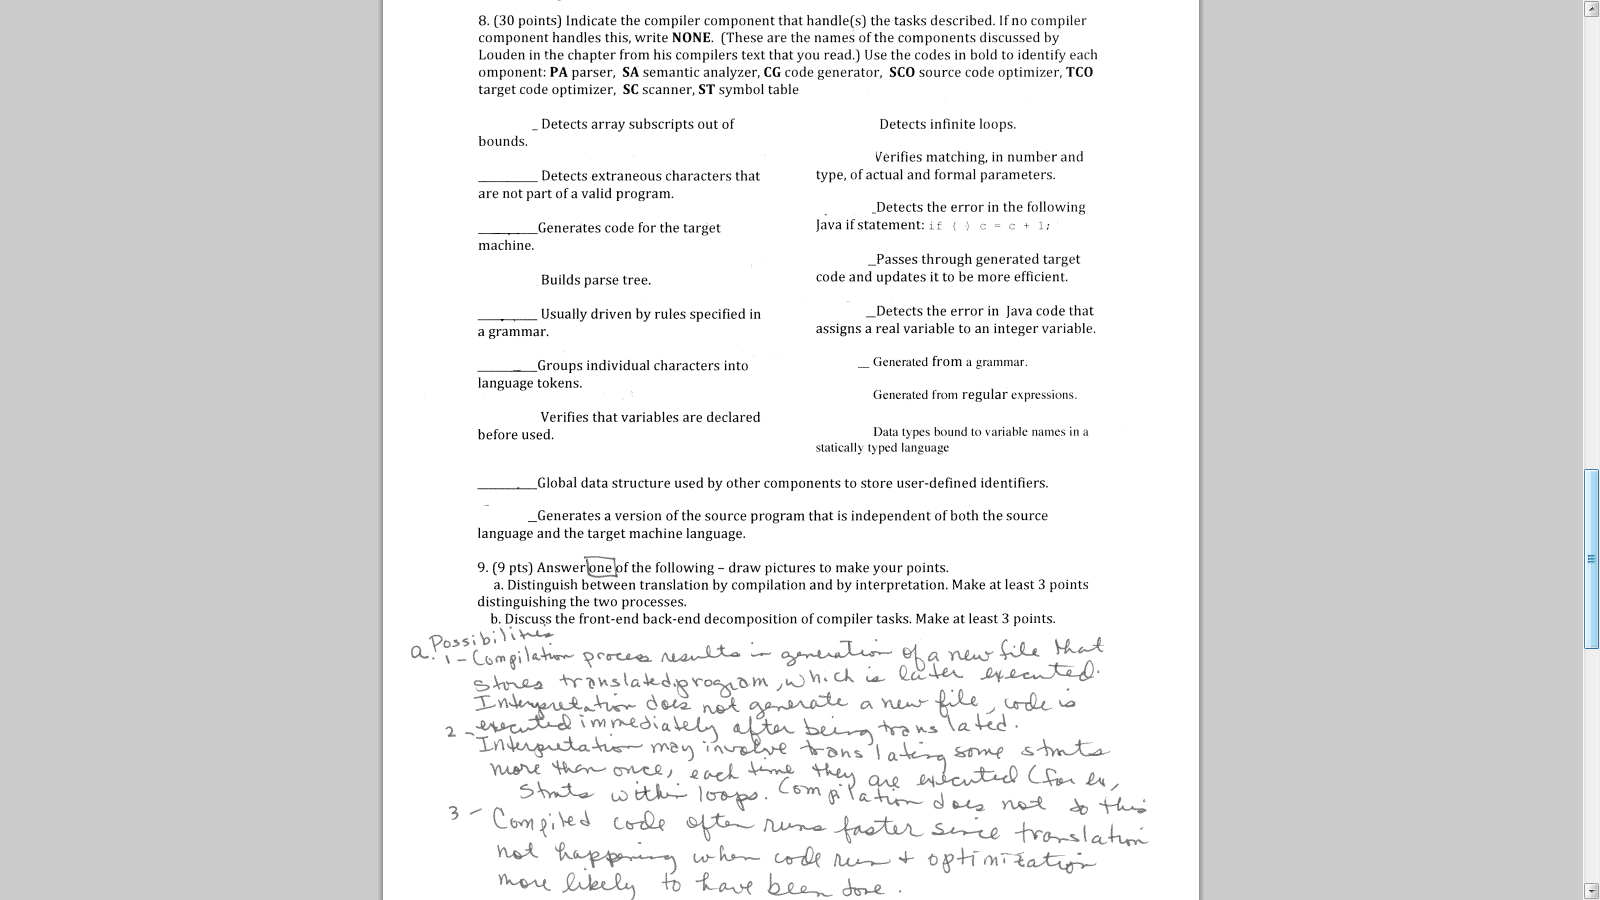 8. (30 points) Indicate the compiler component that handle(s) the tasks described. If no compiler
component handles this, write NONE. (These are the names of the components discussed by
Louden in the chapter from his compilers text that you read.) Use the codes in bold to identify each
omponent: PA parser, SA semantic analyzer, CG code generator, SCO source code optimizer, TCO
target code optimizer, SC scanner, ST symbol table
_ Detects array subscripts out of
bounds.
__________ Detects extraneous characters that
are not part of a valid program.
__________Generates code for the target
machine.
Builds parse tree.
__________ Usually driven by rules specified in
a grammar.
__________Groups individual characters into
language tokens.
Verifies that variables are declared
before used.
Detects infinite loops.
Verifies matching, in number and
type, of actual and formal parameters.
_Detects the error in the following
Java if statement: if ( ) c = c + 1;
_Passes through generated target
code and updates it to be more efficient.
_Detects the error in Java code that
assigns a real variable to an integer variable.
__ Generated from a grammar.
Generated from regular expressions.
Data types bound to variable names in a
statically typed language
__________Global data structure used by other components to store user-defined identifiers.
_Generates a version of the source program that is independent of both the source
language and the target machine language.
9. (9 pts) Answer one of the following – draw pictures to make your points.
a. Distinguish between translation by compilation and by interpretation. Make at least 3 points
distinguishing the two processes.
b. Discuss the front-end back-end decomposition of compiler tasks. Make at least 3 points.
a. Possibilities
1 - Compilation process results in generation of a new file that
stores translated program, which is later executed.
Interpretation does not generate a new file, code is
executed immediately after being translated.
2 - Interpretation may involve translating some stmts
more than once, each time they are executed (for ex,
stmts within loops. Compilation does not do this
3 - Compiled code often runs faster since translation
not happening when code run + optimization
more likely to have been done.